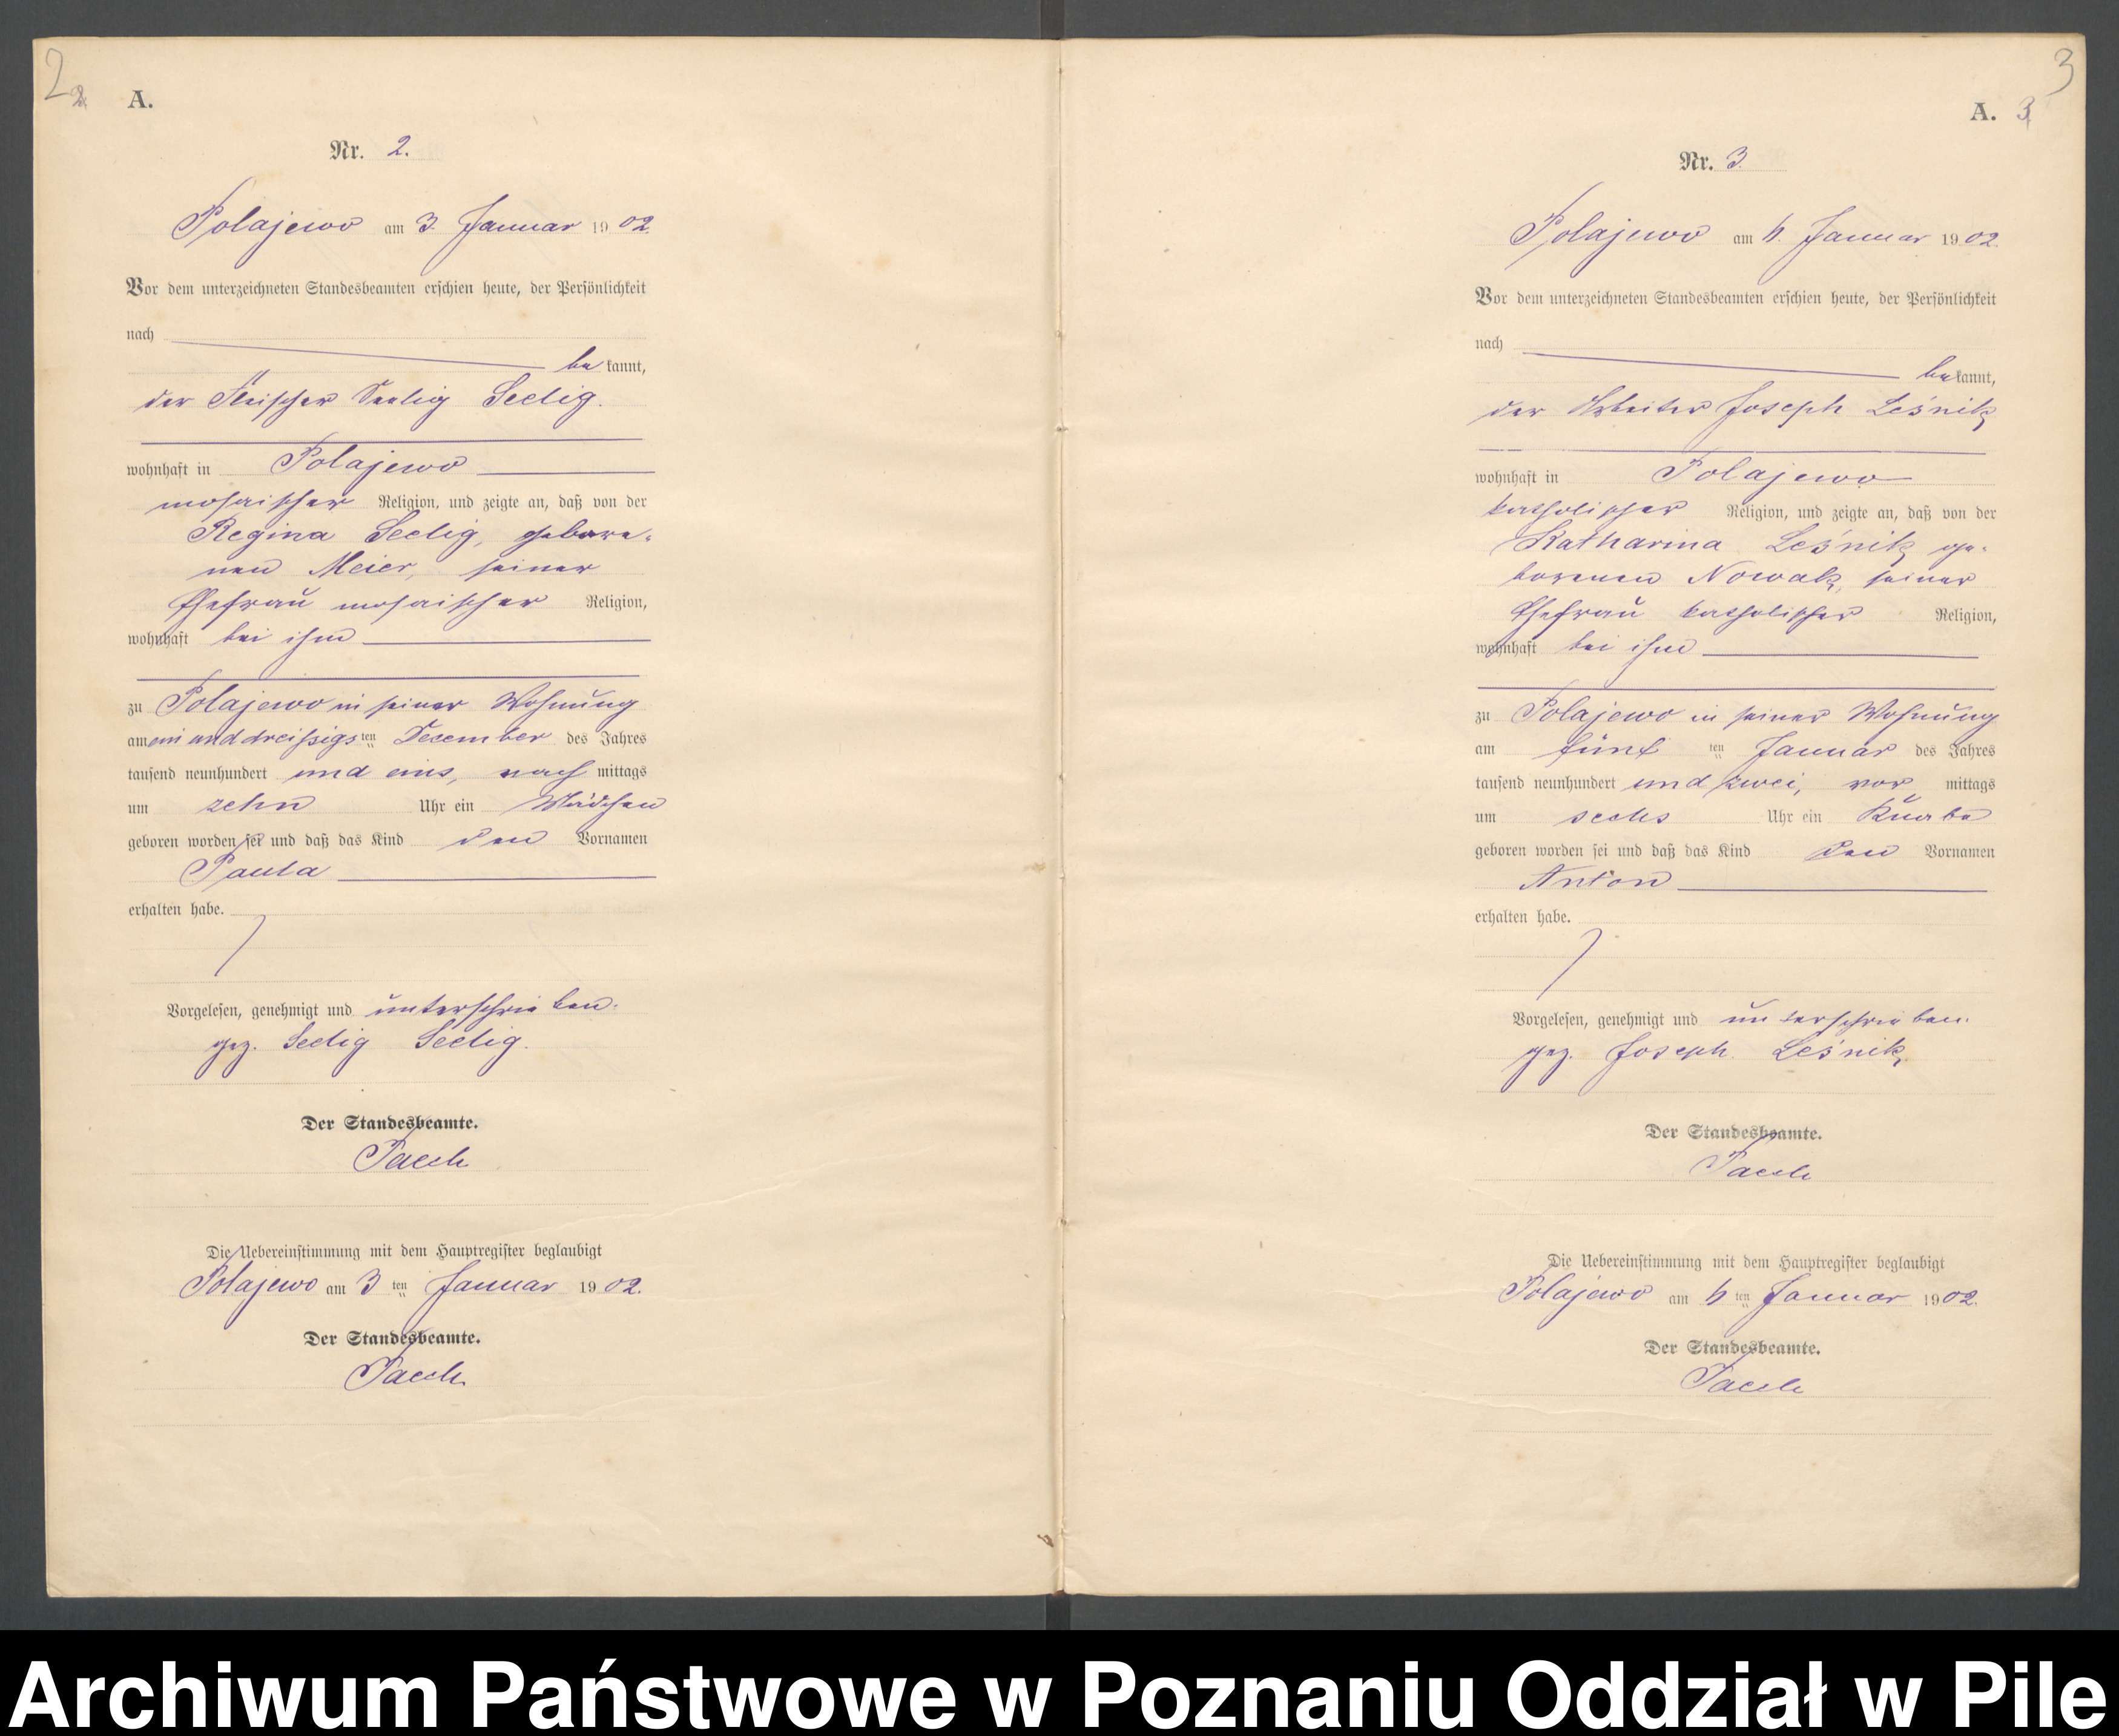 2
2.
A.
Nr. 2.
Polajewo am 3. Januar 1902.
Vor dem unterzeichneten Standesbeamten erschien heute, der Persönlichkeit
nach
bekannt,
der Fleischer Seelig Seelig.
wohnhaft in Polajewo
mosaischer Religion, und zeigte an, daß von der
Regina Seelig, gebore-
nen Meier, seiner
Ehefrau mosaischer Religion,
wohnhaft bei ihm
zu Polajewo in seiner Wohnung
am ein und dreißigs ten December des Jahres
tausend neunhundert und eins, nach mittags
um zehn Uhr ein Mädchen
geboren worden sei und daß das Kind den Vornamen
Paula
erhalten habe.
Vorgelesen, genehmigt und unterschrieben.
gez. Seelig Seelig.
Der Standesbeamte.
Die Uebereinstimmung mit dem Hauptregister beglaubigt
Polajewo am 3 ten Januar 1902.
Der Standesbeamte.
3
A. 3.
Nr. 3.
Polajewo am 6. Januar 1902.
Vor dem unterzeichneten Standesbeamten erschien heute, der Persönlichkeit
nach
bekannt,
der Arbeiter Joseph Leśnik
wohnhaft in Polajewo
katholischer Religion, und zeigte an, daß von der
Katharina Leśnik ge-
borenen Nowak, seiner
Ehefrau katholischer Religion,
wohnhaft bei ihm
zu Polajewo in seiner Wohnung
am fünf ten Januar des Jahres
tausend neunhundert und zwei, vor mittags
um sechs Uhr ein Knabe
geboren worden sei und daß das Kind den Vornamen
Anton
erhalten habe.
Vorgelesen, genehmigt und unterschrieben.
gez. Joseph Leśnik
Der Standesbeamte.
Die Uebereinstimmung mit dem Hauptregister beglaubigt
Polajewo am 6 ten Januar 1902.
Der Standesbeamte.
Archiwum Państwowe w Poznaniu Oddział w Pile